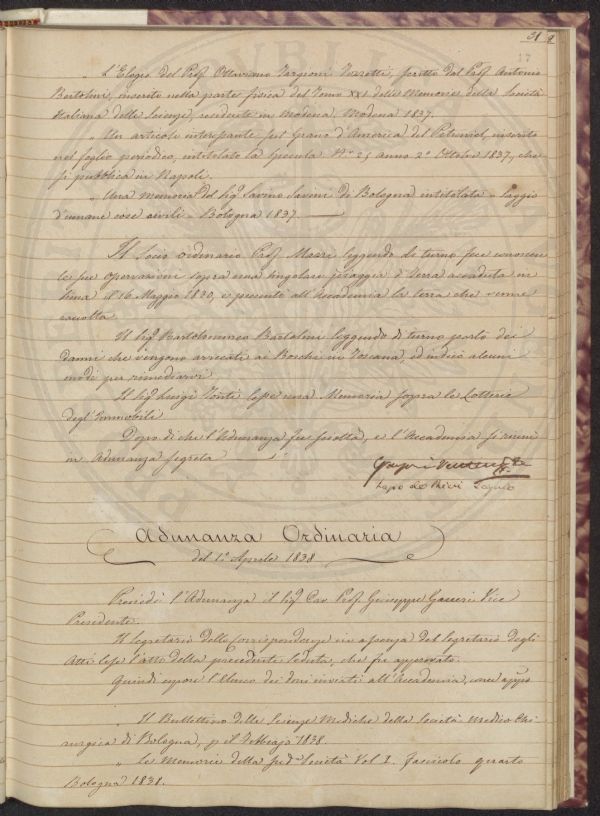 17
„ L'Elogio del Prof. Ottaviano Targioni Tozzetti, scritto dal Prof. Antonio
Bertoloni, inserito nella parte fisica del Tomo XXI delle Memorie della Società
Italiana delle Scienze, residente in Modena. Modena 1837.
„ Un articolo interessante sul Grano d'America del inserito
nel foglio periodico, intitolato la Specula. N.º 25 anno 2º Ottobre 1837, che
si pubblica in Napoli.
„ Una memoria del Sigr. Savino Savini di Bologna intitolata = Saggio
d'umane cose civili = Bologna 1837.
Il Socio ordinario Prof. leggendo di turno fece conoscere
le sue osservazioni sopra una singolare pioggia di terra accaduta in
Siena il 16 Maggio 1830, e presentò all'Accademia la terra che venne
raccolta.
Il Sigr. Bartolommeo Bartolini leggendo di turno parlò dei
danni che vengono arrecati ai Boschi in Toscana, ed indicò alcuni
modi per rimediarvi.
Il Sigr. Luigi Tonti lesse una Memoria sopra le Lotterie
degl'Immobili.
Dopo di che l'Adunanza fu sciolta, e l'Accademia si riunì
in Adunanza segreta
Lapo de Ricci
Adunanza Ordinaria
del 1º Aprile 1838
Presiede l'Adunanza il Sigr. Cav. Prof. Giuseppe Gazzeri Vice
Presidente.
Il Segretario delle Corrispondenze in assenza del Segretario degli
Atti lesse l'atto della precedente seduta, che fu approvato.
Quindi espose l'elenco dei doni inviati all'Accademia, come appº
„ Il Bullettino delle Scienze Mediche della Società Medico Chi
rurgica di Bologna, p. il Febbrajo 1838.
„ Le Memorie della sudª Società Vol. I. fascicolo quarto
Bologna 1838.